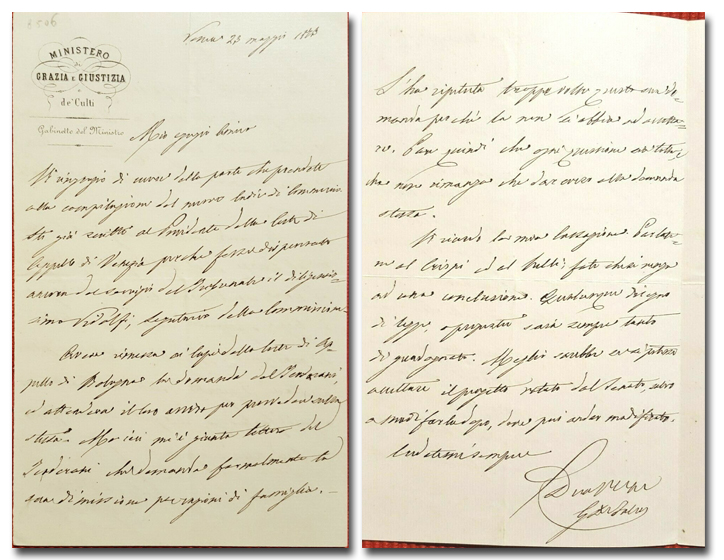 6506
MINISTERO
di
GRAZIA E GIUSTIZIA
e
de' Culti
Gabinetto del Ministro
Roma 23 maggio
Mio egregio
Vi ringrazio di cuore della parte che prendete
alla compilazione del nuovo Codice di Commercio
Ho già scritto al Presidente della Corte di
Appello di Venezia perché fosse dispensato
ancora dal servizio del Tribunale il diligentis-
simo Ridolfi, segretario della Commissione.
Aveva rimessa ai Capi della Corte di Ap-
pello di Bologna la domanda del
ed attendeva il loro avviso per provvedere sulla
stessa. Ma ieri m'è giunta lettera del
che domanda formalmente la
sua dimissione per ragioni di famiglia. —
S'ha ripetuta troppe volte questa do-
manda perché la non si abbia ad accetta-
re. Pare quindi che ogni quistione
che non rimanga che dar corso alla domanda
stessa.
Vi ricordo la mia Cassazione. Parlate-
ne al Crispi ed al fate che si venga
ad una conclusione. Qualunque disegno
di legge, sarà sempre tanto
di guadagnato. Meglio sarebbe se si potesse
accettare il progetto votato dal Senato, salvo
a modificarlo dopo, dove può andar modificato.
Credetemi sempre